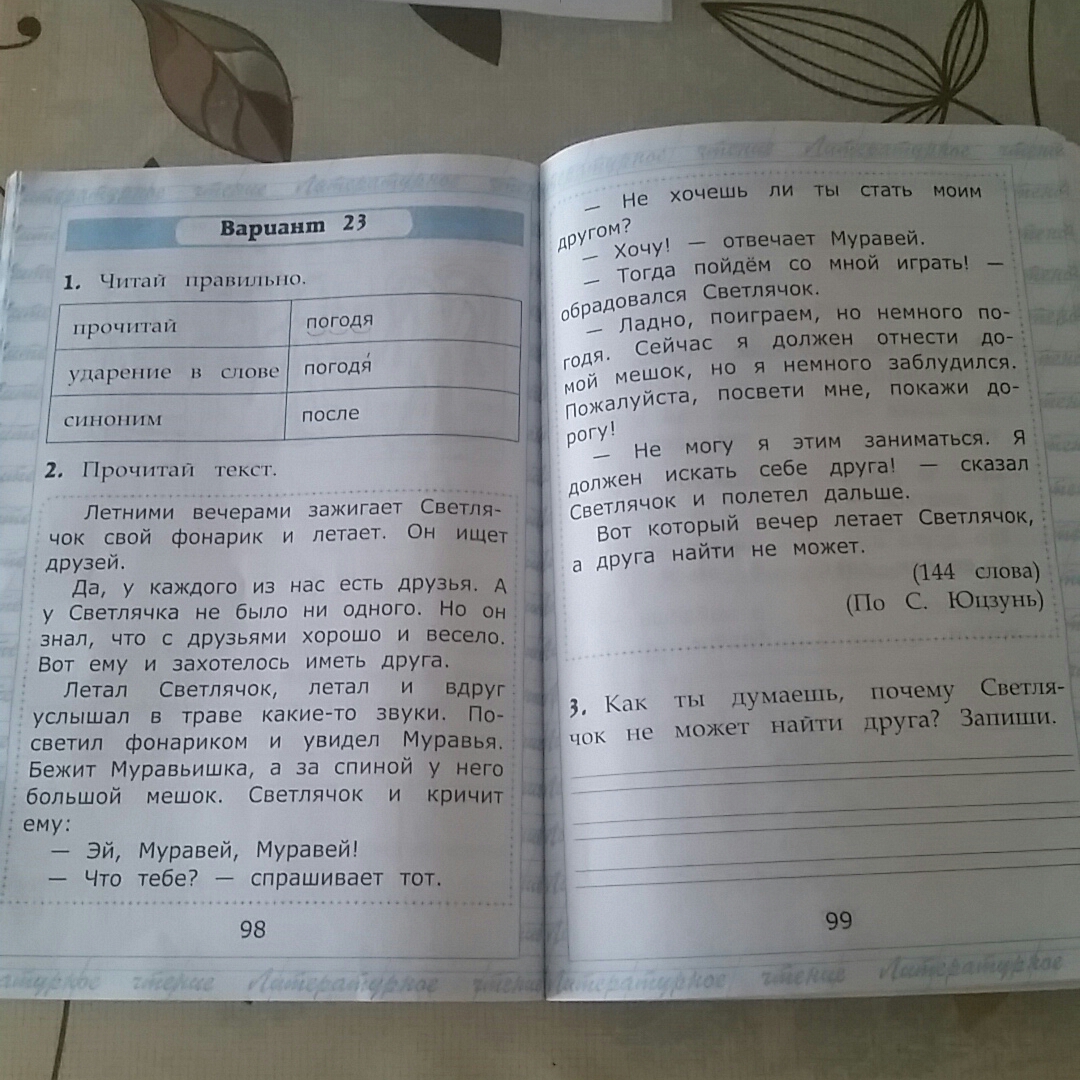 Литературное чтение Литературное
Вариант 23
1. Читай правильно.
прочитай погодя
ударение в слове погодя́
синоним после
2. Прочитай текст.
Летними вечерами зажигает Светля-
чок свой фонарик и летает. Он ищет
друзей.
Да, у каждого из нас есть друзья. А
у Светлячка не было ни одного. Но он
знал, что с друзьями хорошо и весело.
Вот ему и захотелось иметь друга.
Летал Светлячок, летал и вдруг
услышал в траве какие-то звуки. По-
светил фонариком и увидел Муравья.
Бежит Муравьишка, а за спиной у него
большой мешок. Светлячок и кричит
ему:
— Эй, Муравей, Муравей!
— Что тебе? — спрашивает тот.
98
чтение Литературное
Литературное чтение Литературное чтение
— Не хочешь ли ты стать моим
другом?
— Хочу! — отвечает Муравей.
— Тогда пойдём со мной играть! —
обрадовался Светлячок.
— Ладно, поиграем, но немного по-
годя. Сейчас я должен отнести до-
мой мешок, но я немного заблудился.
Пожалуйста, посвети мне, покажи до-
рогу!
— Не могу я этим заниматься. Я
должен искать себе друга! — сказал
Светлячок и полетел дальше.
Вот который вечер летает Светлячок,
а друга найти не может.
(144 слова)
(По С. Юцзунь)
3. Как ты думаешь, почему Светля-
чок не может найти друга? Запиши.
99
Литературное чтение Литературное